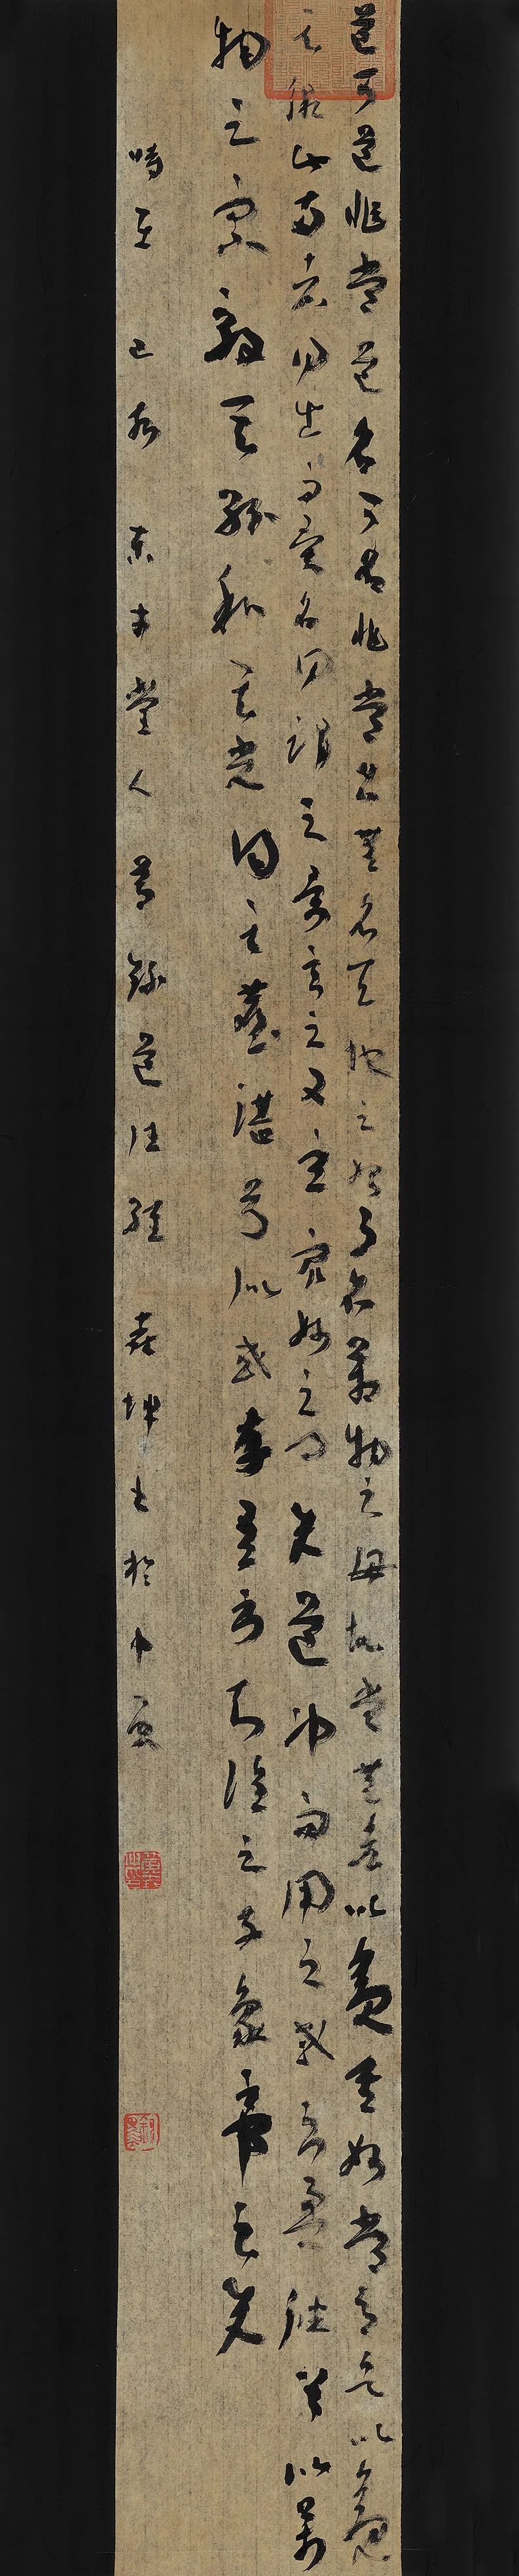 道可道非常道名可名非常名無名天地之始有名萬物之母故常無欲以觀其妙常有欲以觀
其徼此兩者同出而異名同謂之玄玄之又玄眾妙之門 道沖而用之或不盈 以萬
物之宗 其紛和其光同其塵湛兮似或存吾不知誰之子象帝之先
時在己 堂人 錄道德經 坤書於中京